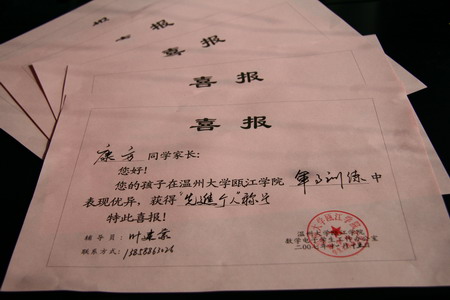 喜报
喜报
喜报
喜报
喜报
康方 同学家长:
您好!
您的孩子在温州大学瓯江学院 军事训练 中
表现优异，获得"先进个人"称号
特此喜报!
辅导员:叶建荣
联系方式:
温州大学瓯江学院
数学电子学生工作办公室